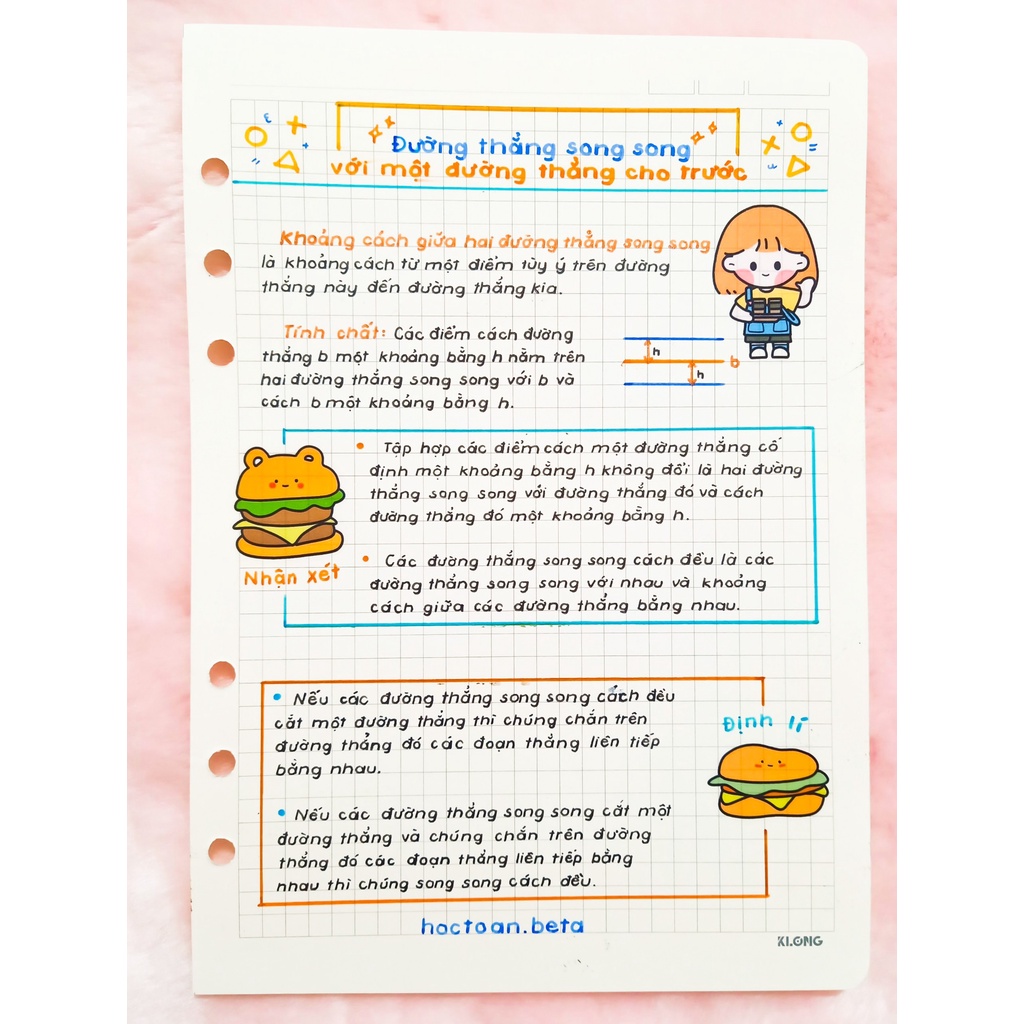 Đường thẳng song song
với một đường thẳng cho trước
Khoảng cách giữa hai đường thẳng song song
là khoảng cách từ một điểm tùy ý trên đường
thẳng này đến đường thẳng kia.
Tính chất: Các điểm cách đường
thẳng b một khoảng bằng h nằm trên
hai đường thẳng song song với b và
cách b một khoảng bằng h.
h
b
h
• Tập hợp các điểm cách một đường thẳng cố
định một khoảng bằng h không đổi là hai đường
thẳng song song với đường thẳng đó và cách
đường thẳng đó một khoảng bằng h.
• Các đường thẳng song song cách đều là các
đường thẳng song song với nhau và khoảng
cách giữa các đường thẳng bằng nhau.
Nhận xét
• Nếu các đường thẳng song song cách đều
cắt một đường thẳng thì chúng chắn trên
đường thẳng đó các đoạn thẳng liên tiếp
bằng nhau.
Định lí
• Nếu các đường thẳng song song cắt một
đường thẳng và chúng chắn trên đường
thẳng đó các đoạn thẳng liên tiếp bằng
nhau thì chúng song song cách đều.
hoctoan.beta
KLONG